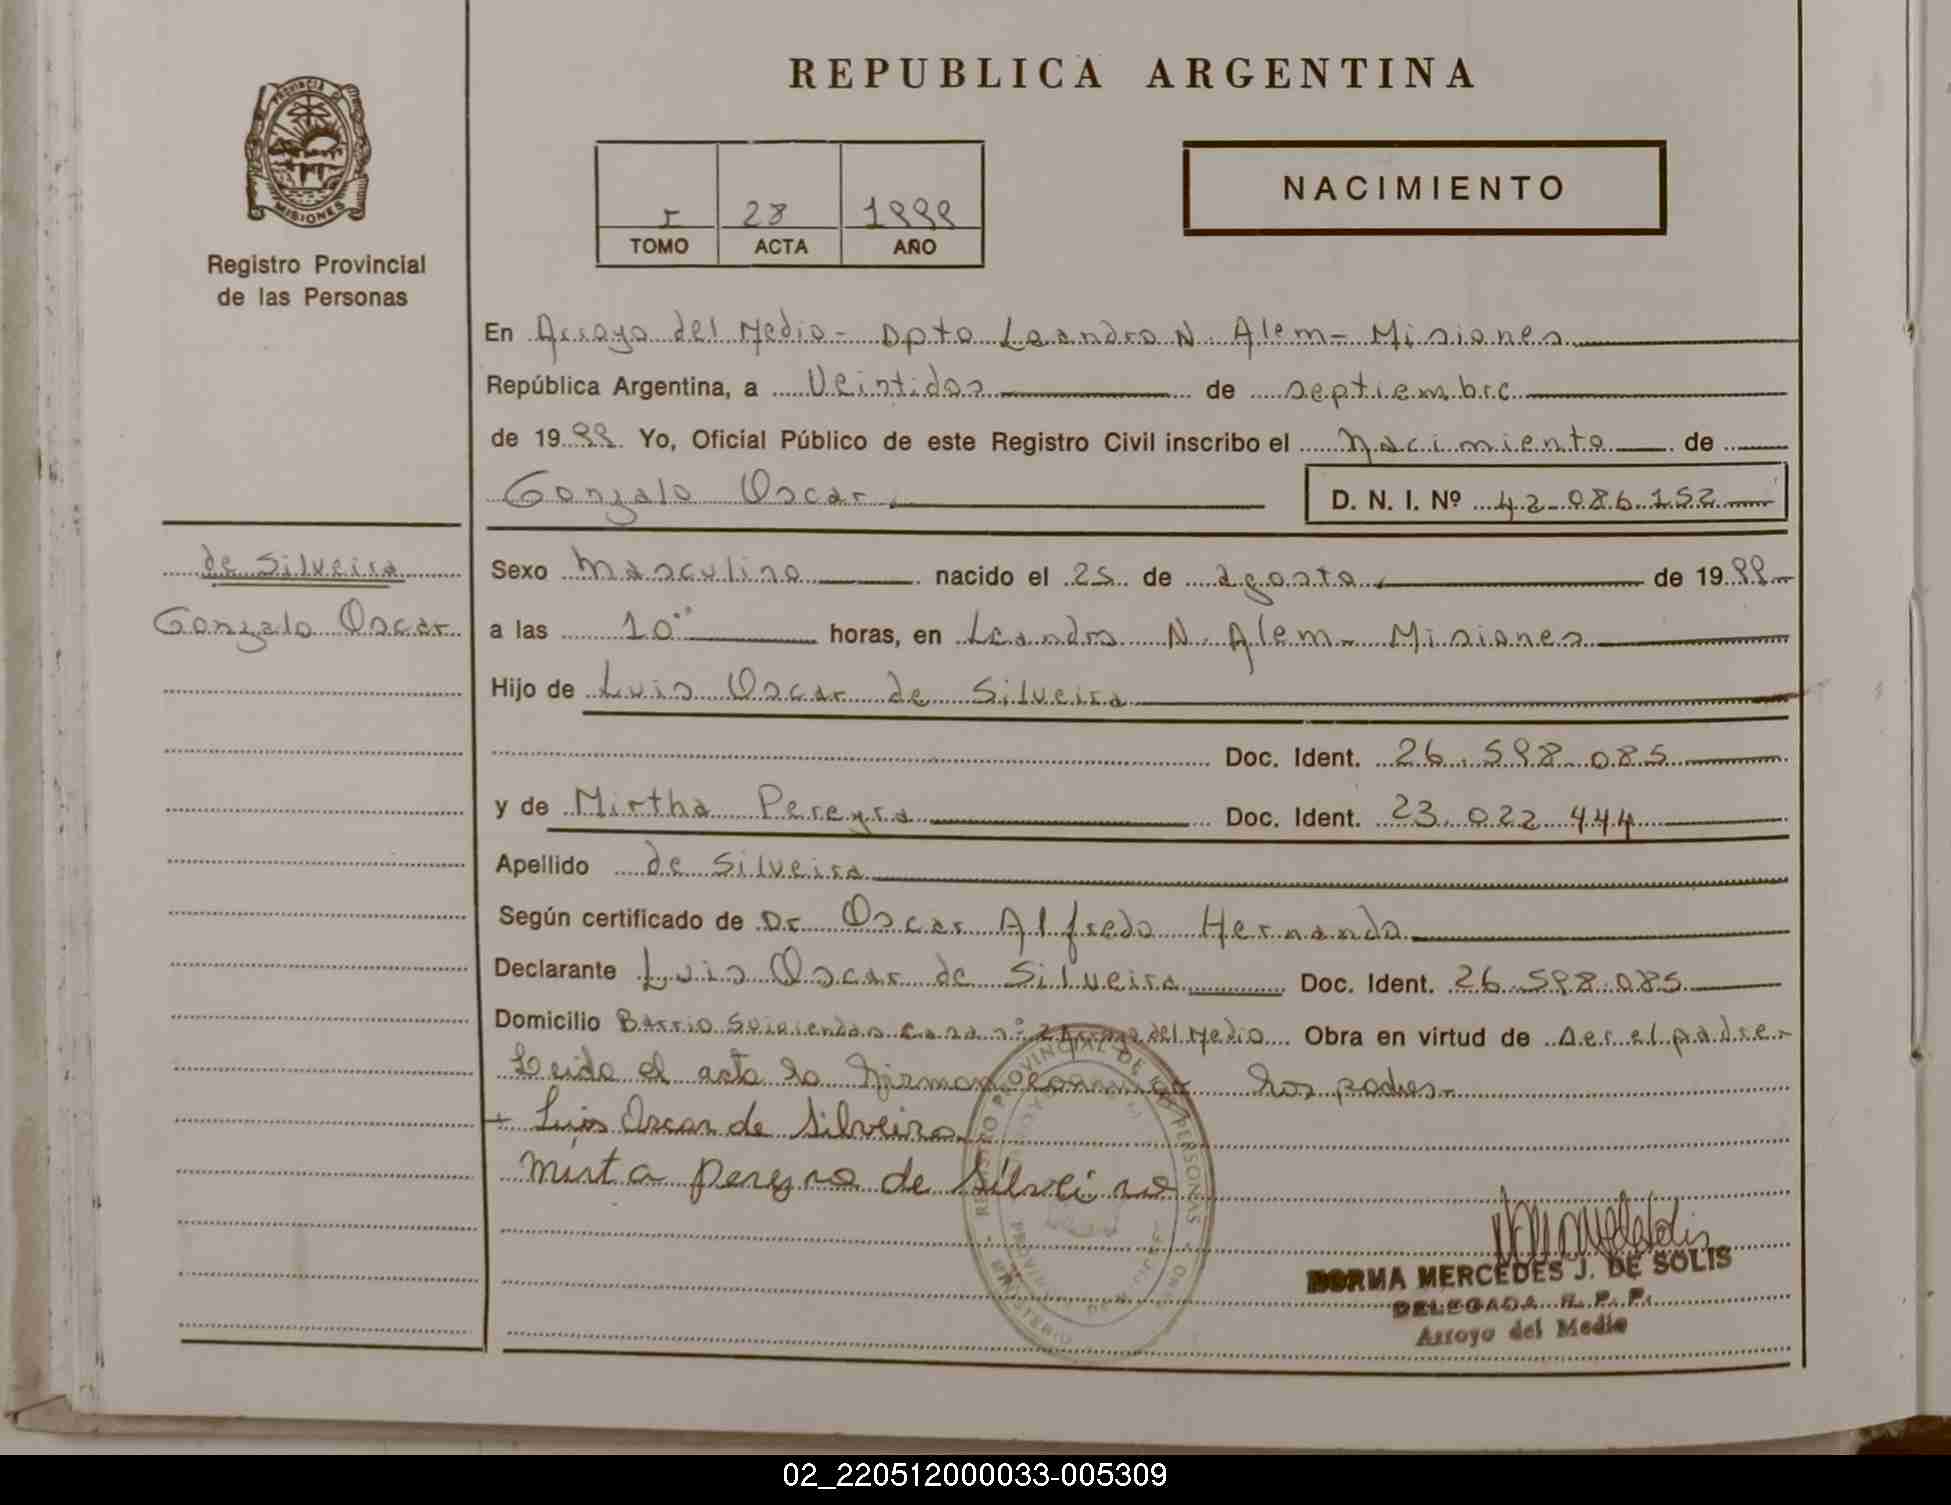 REPUBLICA ARGENTINA
PROVINCIA DE
MISIONES
Registro Provincial
de las Personas
I 28 1999
TOMO ACTA AÑO
NACIMIENTO
En Arroyo del Medio - Dpto Leandro N. Alem - Misiones
República Argentina, a Veintidos de septiembre
de 1999 Yo, Oficial Público de este Registro Civil inscribo el Nacimiento de
Gonzalo Oscar D. N. I. Nº 42.086.152
de Silveira
Gonzalo Oscar
Sexo Masculino nacido el 25 de agosto de 1999
a las 10 horas, en Leandro N. Alem - Misiones
Hijo de Luis Oscar de Silveira
Doc. Ident. 26.598.085
y de Mirtha Pereyra Doc. Ident. 23.022.444
Apellido de Silveira
Según certificado de Dr Oscar Alfredo Hernando
Declarante Luis Oscar de Silveira Doc. Ident. 26.598.085
Domicilio Barrio casa nº 2 Arroyo del Medio Obra en virtud de ser el padre -
Leida el acta la firman conmigo los padres -
+ Luis Oscar de Silveira
Mirta Pereyra de Silveira
REGISTRO PROVINCIAL DE LAS PERSONAS
MERCEDES J. DE SOLIS
DELEGADA R. P. P.
Arroyo del Medio
02_220512000033-005309